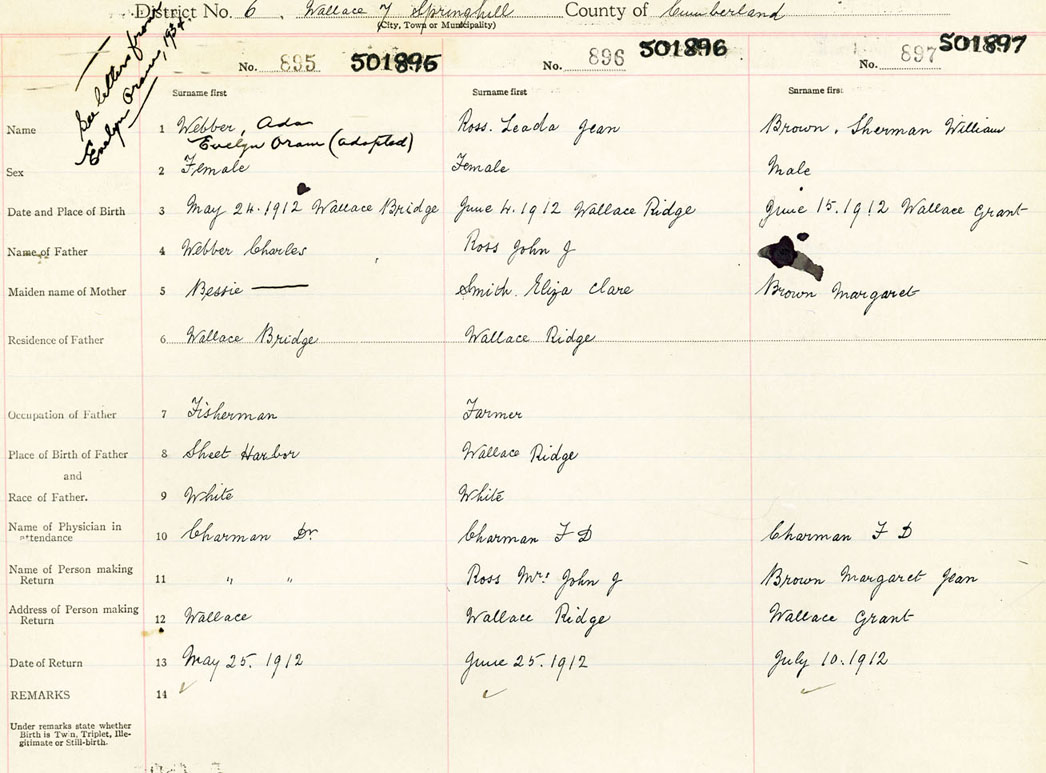 District No. 6, Wallace & Springhill County of Cumberland
(City, Town or Municipality)
See letters from
Evelyn Oram, 1934.
No. 895 501895 No. 896 501896 No. 897 501897
Surname first Surname first Surname first
Name 1 Webber, Ada Ross. Leada Jean Brown, Sherman William
Evelyn Oram (adopted)
Sex 2 Female Female Male
Date and Place of Birth 3 May 24.1912 Wallace Bridge June 4.1912 Wallace Ridge June 15.1912 Wallace Grant
Name of Father 4 Webber Charles Ross John J
Maiden name of Mother 5 Bessie — Smith. Eliza Clare Brown Margaret
Residence of Father 6 Wallace Bridge Wallace Ridge
Occupation of Father 7 Fisherman Farmer
Place of Birth of Father 8 Sheet Harbor Wallace Ridge
and
Race of Father. 9 White White
Name of Physician in
attendance 10 Charman Dr. Charman F D Charman F D
Name of Person making
Return 11 " " Ross Mrs John J Brown Margaret Jean
Address of Person making
Return 12 Wallace Wallace Ridge Wallace Grant
Date of Return 13 May 25. 1912 June 25.1912 July 10.1912
REMARKS 14
Under remarks state whether
Birth is Twin, Triplet, Ille-
gitimate or Still-birth.